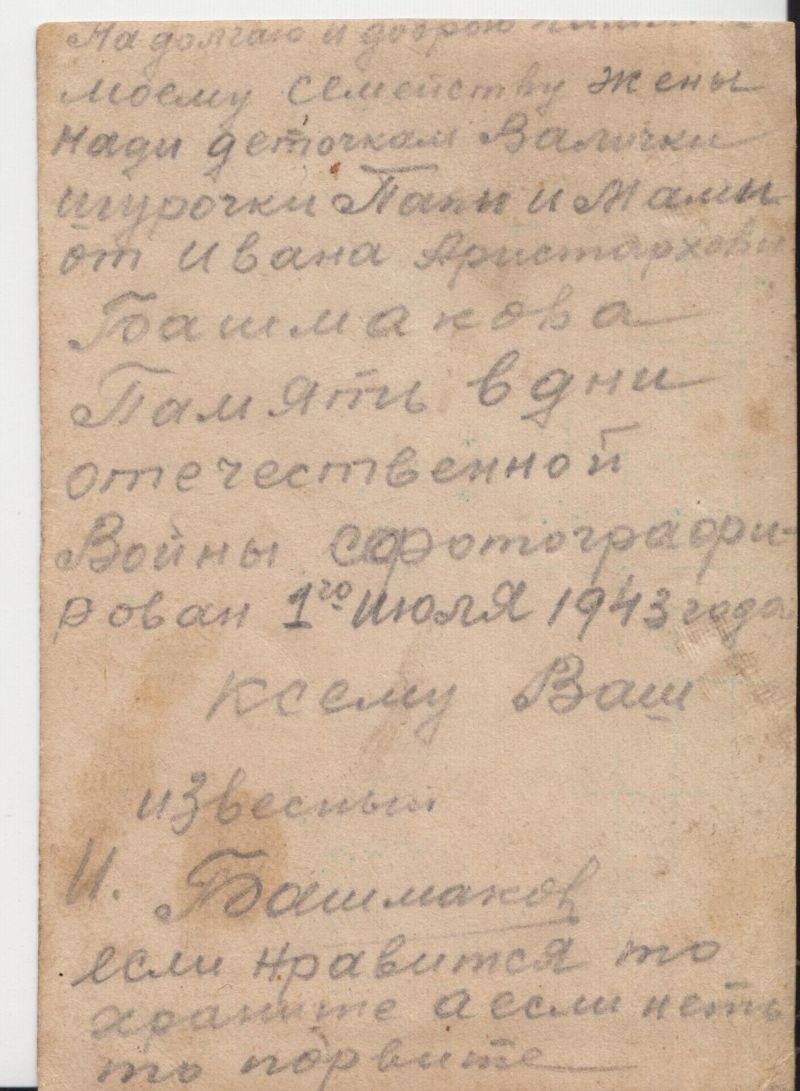 На долгаю и доброю память
моему семейству жены
Нади деточкам Валички
шурочки Папы и Мамы
от Ивана Аристархови
Башмакова
Память в дни
отечественной
Войны сфотографи-
рован 1го июля 1943 года
ксему Ваш
известный
И. Башмаков
если нравится то
храните а если неть
то порвите